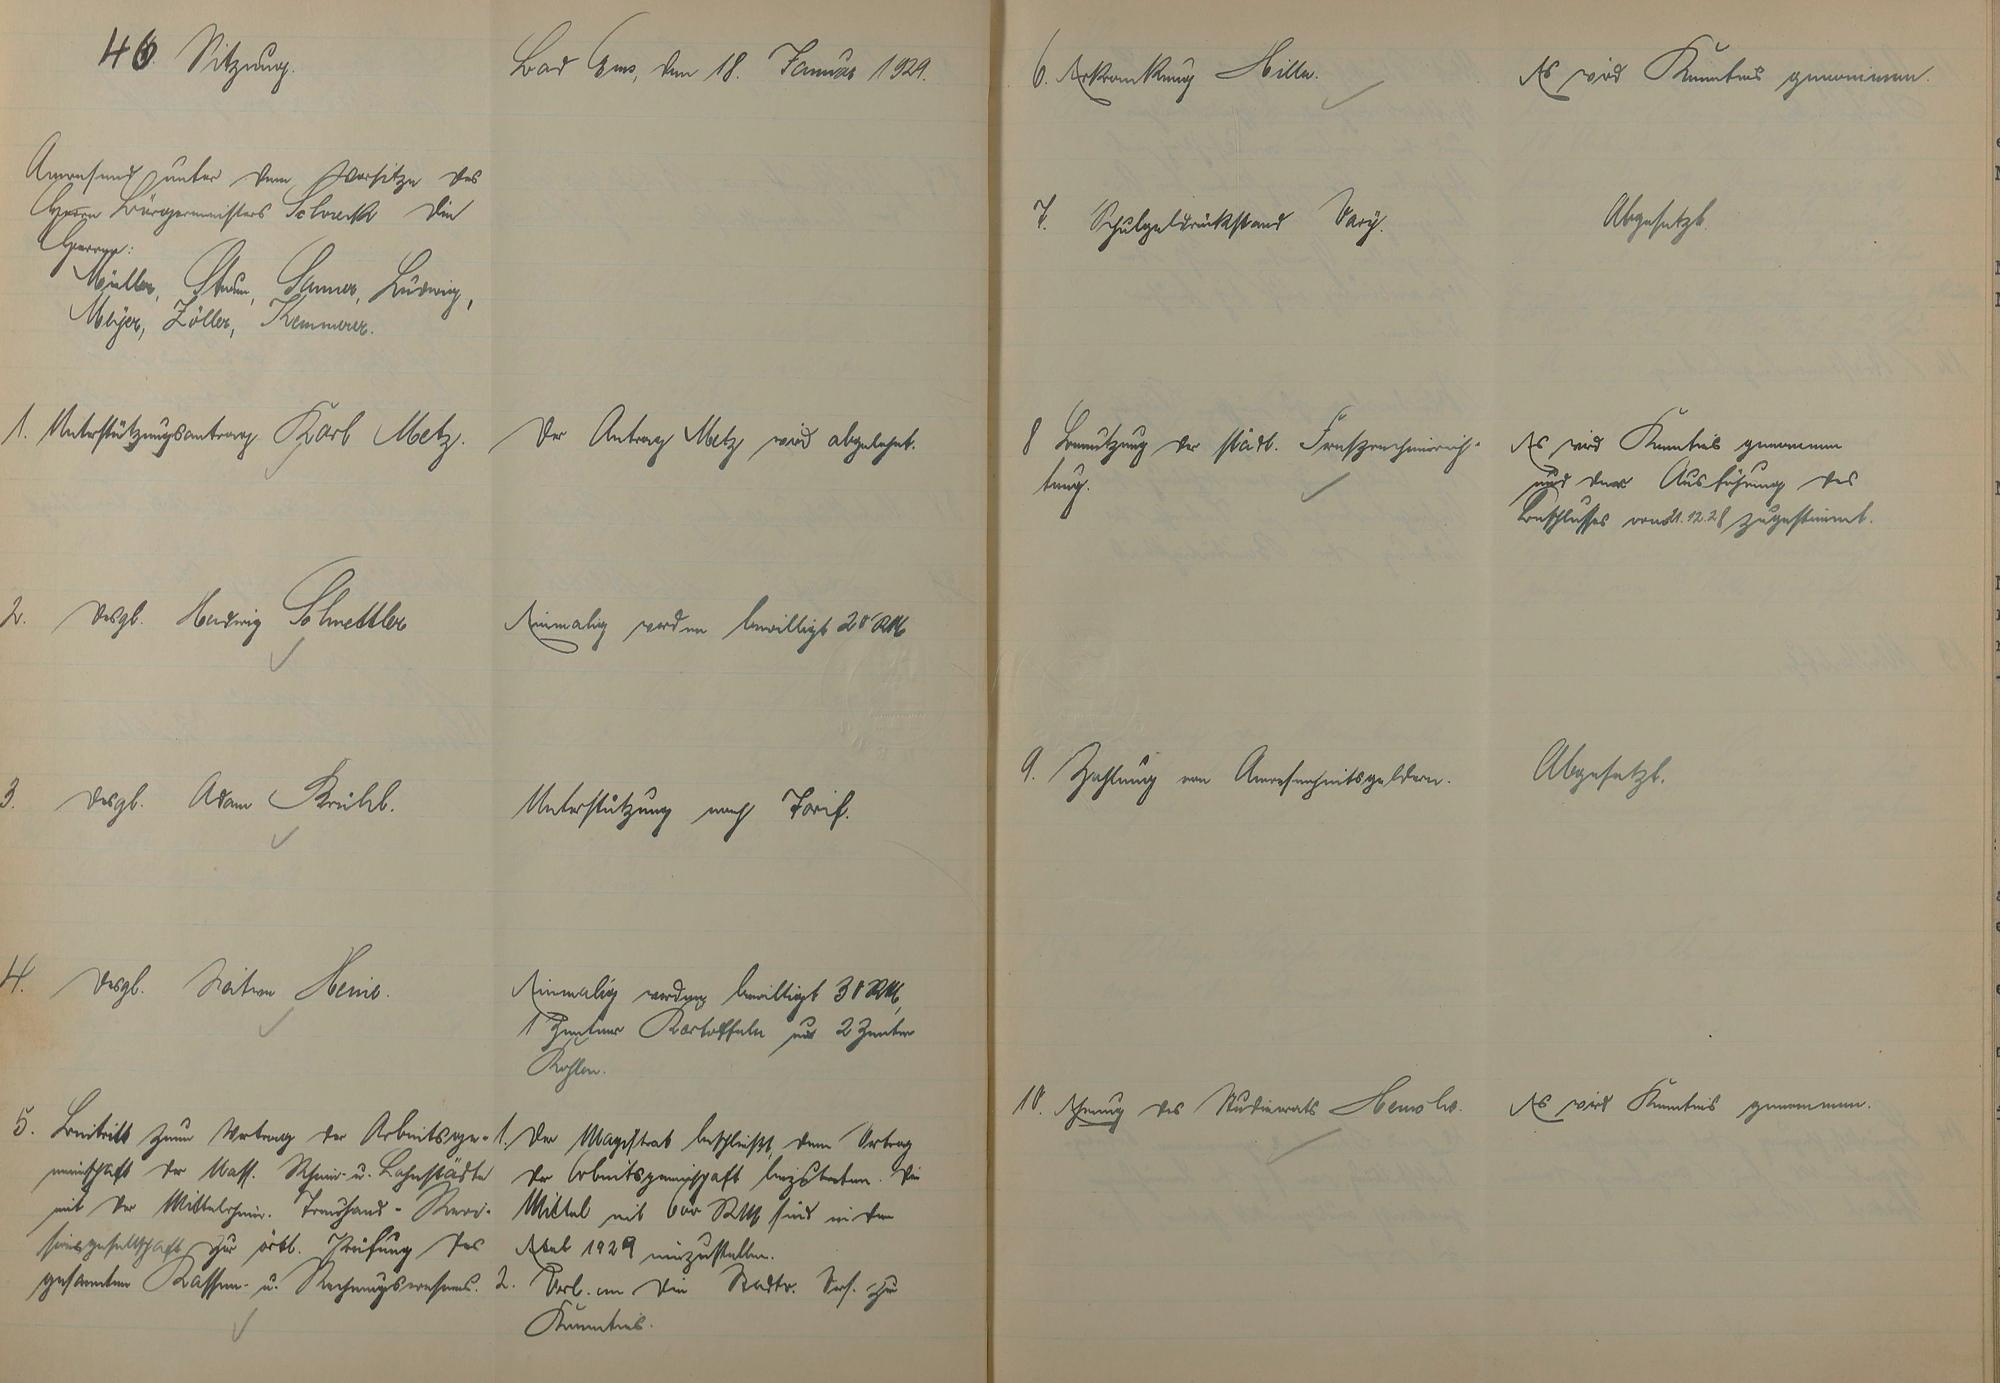 46. Sitzung.
Bad Ems, den 18. Januar 1929.
Anwesend unter dem Vorsitze des
Herrn Bürgermeisters Schreck die
Herren:
Müller, Sanner, Ludwig,
Meyer, Zöller, Kemmerer.
1. Unterstützungsantrag Karl Metz.
Der Antrag Metz wird abgelehnt.
2. desgl. Hedwig Schmettler
Einmalig werden bewilligt 20 RM
3. desgl. Adam Brühl.
Unterstützung nach Tarif.
4. desgl. Witwe
Einmalig werden bewilligt 30 RM,
1 Zentner Kartoffeln und 2 Zentner
Kohlen.
5. Beitritt zum Vertrag der Arbeitsge-
meinschaft der Nass. Rhein- u. Lahnstädte
mit der Mittelrhein. Treuhand- Revi-
sionsgesellschaft zur örtl. Prüfung des
gesamten Kassen- u. Rechnungswesens.
1. Der Magistrat beschließt, dem Vertrag
der Arbeitsgemeinschaft beizutreten. Die
Mittel mit 600 RM sind in den
Etat 1929 einzustellen.
2. Vorl. an die Stadtv. Vers. zur
Kenntnis.
6. Erkrankung Hiller.
Es wird Kenntnis genommen.
7. Schulgeldrückstand
Abgesetzt.
8 Benutzung der städt. Fernsprecheinrich-
tung.
Es wird Kenntnis genommen
und der Ausführung des
Beschlusses vom 21.12.28 zugestimmt.
9. Zahlung von Anwesenheitsgeldern.
Abgesetzt.
10. Ehrung des Studienrats
Es wird Kenntnis genommen.